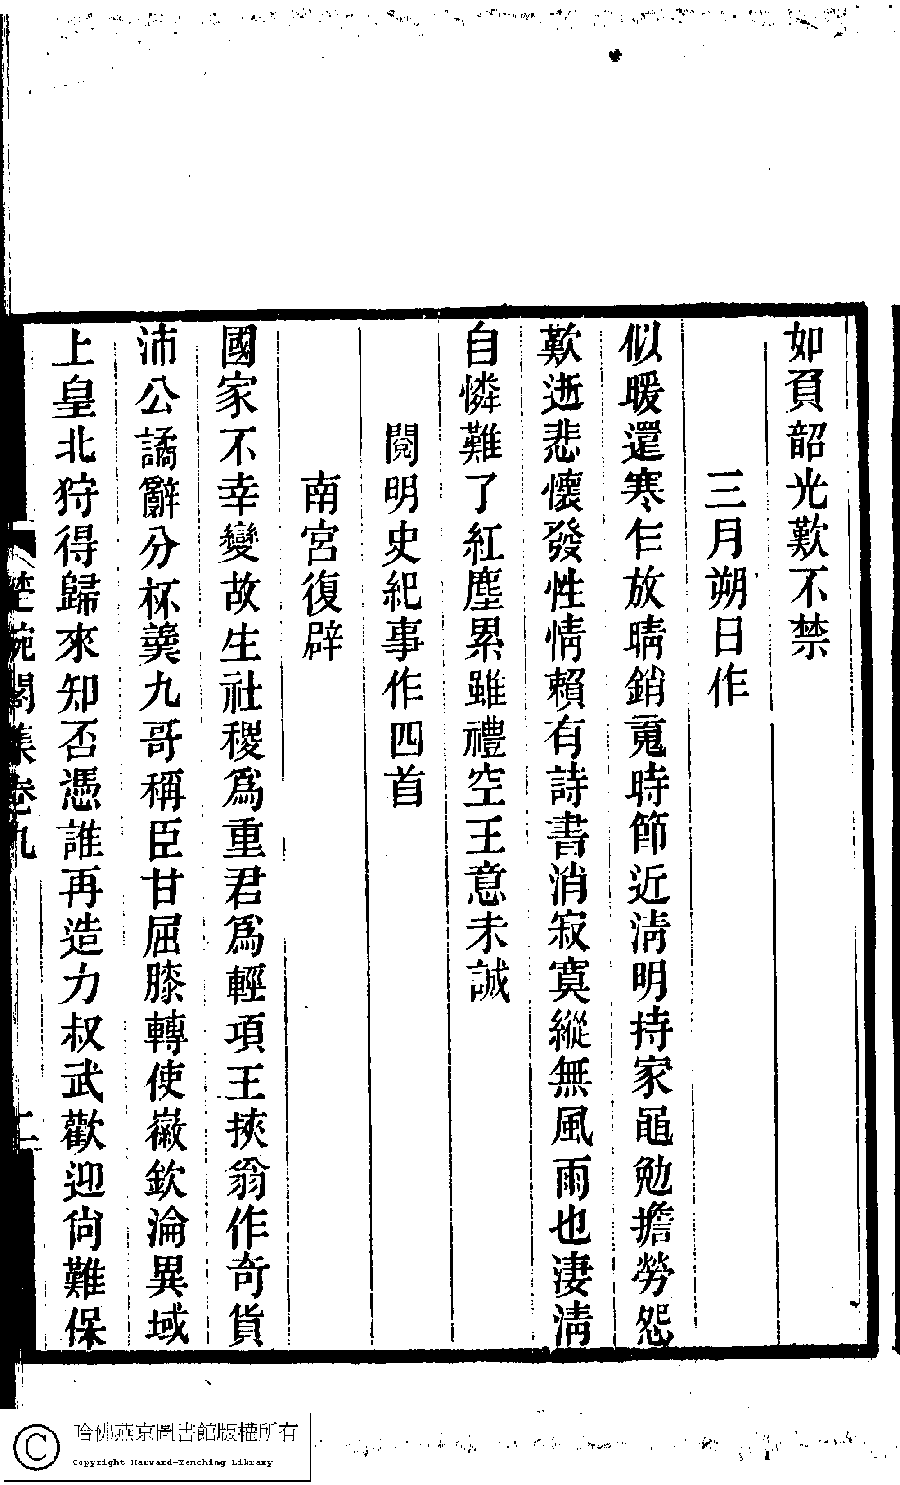 如負韶光歎不禁
三月朔日作
似暖還寒乍放晴銷䰟時節近淸明持家黽勉擔勞怨
歎逝悲懷發性情賴有詩書消寂寞縱無風雨也淒淸
自憐難了紅塵累雖禮空王意未誠
閱明史紀事作四首
南宮復辟
國家不幸變故生社稷爲重君爲輕項王挾翁作奇貨
沛公譎辭分杯羹九哥稱臣甘屈膝轉使徽欽淪異域
上皇北狩得歸來知否憑誰再造力叔武歡迎尙難保
楚畹閣集卷九
二
哈佛燕京圖書館版權所有
Copyright Harvard-Yenching Library